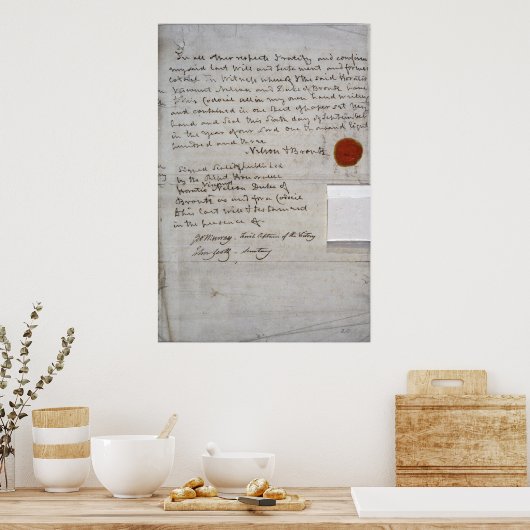 In all other respects I ratify and confirm
my said Last Will and Testament and former
Codicil In Witness whereof I the said Horatio
Viscount Nelson and Duke of Bronte have
this Codicil all in my own hand written
and contained in one Sheet of paper set my
hand and Seal this Sixth day of September
in the Year of our Lord One thousand Eight
hundred and three
Nelson & Bronte
Signed Sealed published
by the Right Honourable
Viscount
Horatio Nelson Duke of
Bronte as and for a Codicil
to his Last Will & Testament
in the presence of
Geo Murray, First Captain of the Victory
John Scott, Secretary